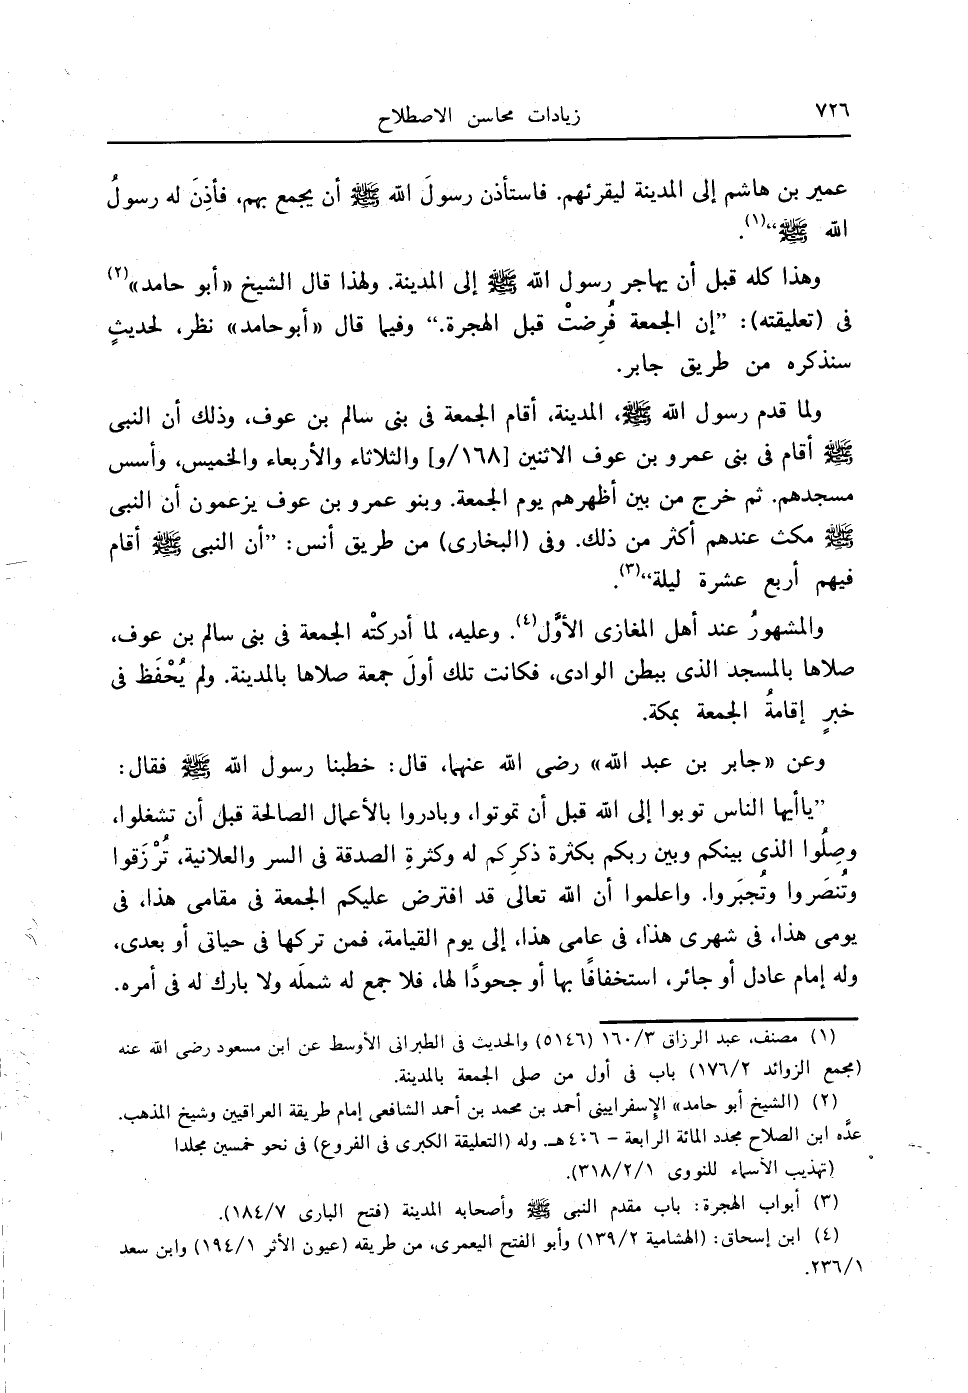 ٧٢٦
زيادات محاسن الاصطلاح
عمير بن هاشم إلى المدينة ليقرئهم. فاستأذن رسولَ الله ﷺ أن يجمع بهم، فأذِنَ له رسولُ
الله ﷺ“(١).
وهذا كله قبل أن يهاجر رسول الله ﷺ إلى المدينة. ولهذا قال الشيخ «أبو حامد»(٢)
فى (تعليقته): ”إن الجمعة فُرِضتْ قبل الهجرة.“ وفيما قال «أبوحامد» نظر، لحديثٍ
سنذكره من طريق جابر.
ولما قدم رسول الله ﷺ، المدينة، أقام الجمعة فى بنى سالم بن عوف، وذلك أن النبى
ﷺ أقام فى بنى عمرو بن عوف الاثنين [١٦٨/و] والثلاثاء والأربعاء والخميس، وأسس
مسجدهم. ثم خرج من بين أظهرهم يوم الجمعة. وبنو عمرو بن عوف يزعمون أن النبى
ﷺ مكث عندهم أكثر من ذلك. وفى (البخارى) من طريق أنس: ”أن النبى ﷺ أقام
فيهم أربع عشرة ليلة“(٣).
والمشهورُ عند أهل المغازى الأوَّل(٤). وعليه، لما أدركتْه الجمعة فى بنى سالم بن عوف،
صلاها بالمسجد الذى ببطن الوادى، فكانت تلك أولَ جمعة صلاها بالمدينة. ولم يُحْفَظ فى
خبرٍ إقامةُ الجمعة بمكة.
وعن «جابر بن عبد الله» رضى الله عنهما، قال: خطبنا رسول الله ﷺ فقال:
”ياأيها الناس توبوا إلى الله قبل أن تموتوا، وبادروا بالأعمال الصالحة قبل أن تشغلوا،
وصِلُوا الذى بينكم وبين ربكم بكثرة ذكرِكم له وكثرةِ الصدقة فى السر والعلانية، تُرْزَقوا
وتُنصَروا وتُجبَروا. واعلموا أن الله تعالى قد افترض عليكم الجمعة فى مقامى هذا، فى
يومى هذا، فى شهرى هذا، فى عامى هذا، إلى يوم القيامة، فمن تركها فى حياتى أو بعدى،
وله إمام عادل أو جائر، استخفافًا بها أو جحودًا لها، فلا جمع له شملَه ولا بارك له فى أمره.
(١) مصنف، عبد الرزاق ١٦٠/٣ (٥١٤٦) والحديث فى الطبرانى الأوسط عن ابن مسعود رضى الله عنه
(مجمع الزوائد ١٧٦/٢) باب فى أول من صلى الجمعة بالمدينة.
(٢) (الشيخ أبو حامد» الإسفرايينى أحمد بن محمد بن أحمد الشافعى إمام طريقة العراقيين وشيخ المذهب.
عدَّه ابن الصلاح مجدد المائة الرابعة - ٤٠٦ هـ. وله (التعليقة الكبرى فى الفروع) فى نحو خمسين مجلدا
(تهذيب الأسماء للنووى ٣١٨/٢/١).
(٣) أبواب الهجرة: باب مقدم النبى ﷺ وأصحابه المدينة (فتح البارى ١٨٤/٧).
(٤) ابن إسحاق: (الهشامية ١٣٩/٢) وأبو الفتح اليعمرى، من طريقه (عيون الأثر ١٩٤/١) وابن سعد
٢٣٦/١.